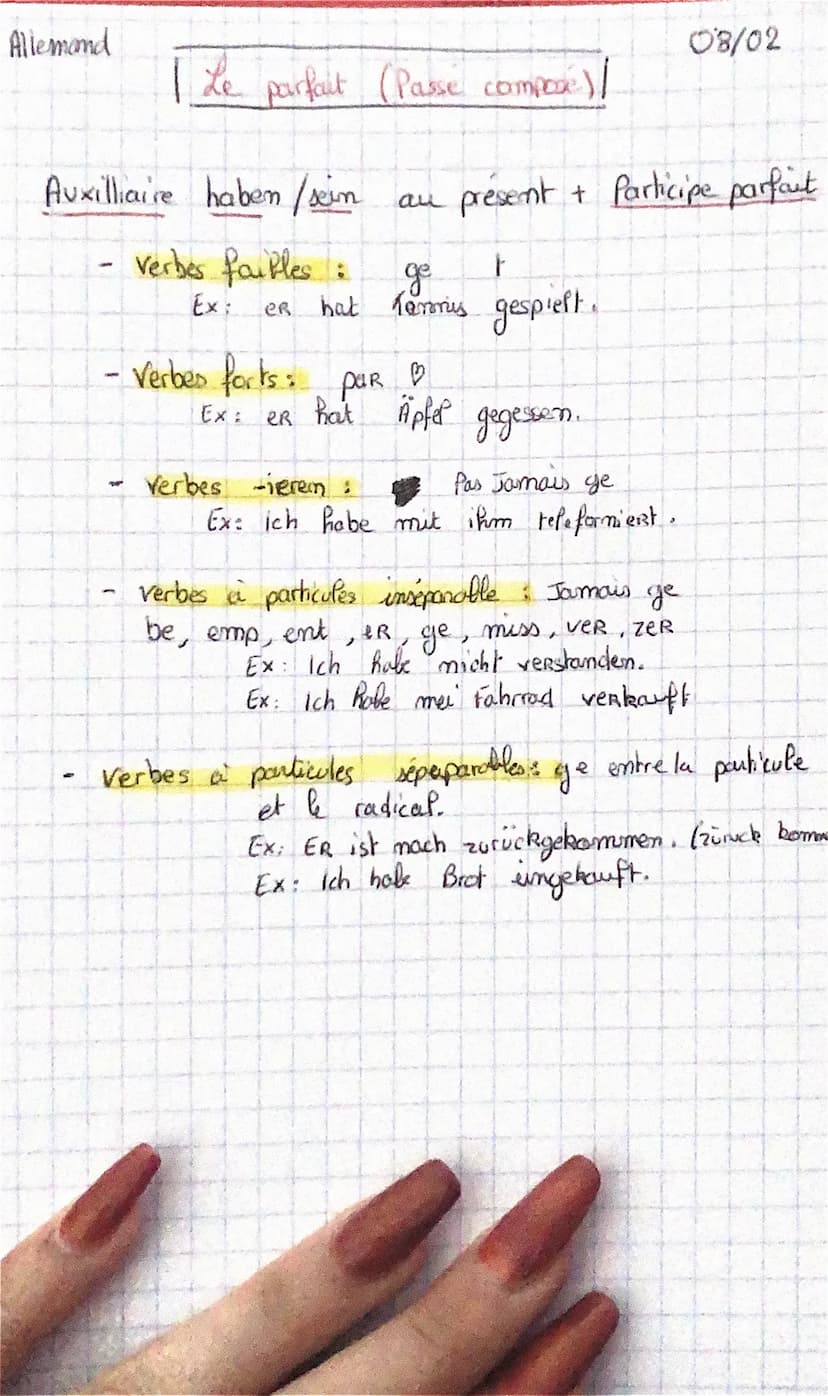 Allemand
08/02
Le parfait (Passé composé)
Auxilliaire haben / sein au présent + Participe parfait
- Verbes faibles : ge t
Ex : er hat Tennis gespielt.
- Verbes forts : par ♡
Ex : er hat Äpfel gegessen.
- Verbes -ieren : Pas Jamais ge
Ex : ich habe mit ihm telefoniert.
- verbes à particules inséparable : Jamais ge
be, emp, ent, er, ge, miss, ver, zer
Ex : Ich habe nicht verstanden.
Ex : Ich habe mei Fahrrad verkauft
- Verbes à particules sépeparables : ge entre la particule
et le radical.
Ex : Er ist nach zurückgekommen. (züruck komm
Ex : Ich habe Brot eingekauft.